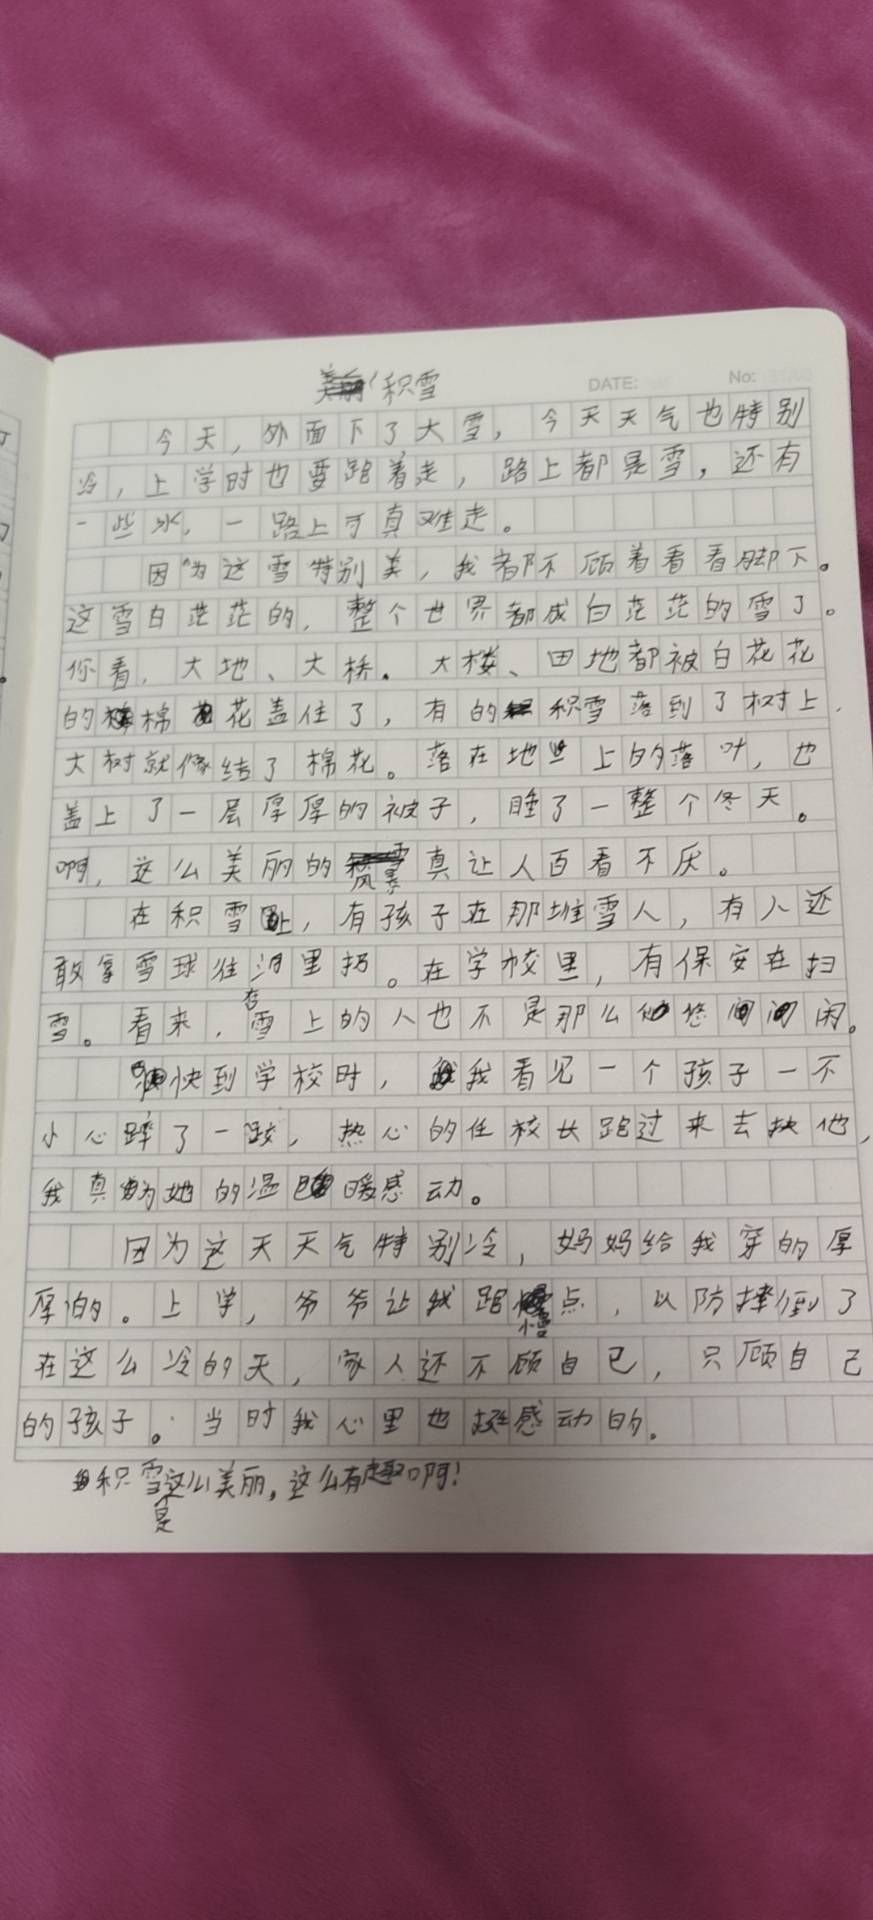 积雪
DATE:
No:
今天,外面下了大雪,今天天气也特别
冷,上学时也要跑着走,路上都是雪,还有
一些冰,一路上可真难走。
因为这雪特别美,我都不顾着看看脚下。
这雪白茫茫的,整个世界都成白茫茫的雪了。
你看,大地、大桥、大楼、田地都被白花花
的棉花盖住了,有的积雪落到了树上,
大树就像结了棉花。落在地上的落叶,也
盖上了一层厚厚的被子,睡了一整个冬天。
啊,这么美丽的雪景真让人百看不厌。
在积雪上,有孩子在那堆雪人,有人还
敢拿雪球往河里扔。在学校里,有保安在扫
雪。看来,在雪上的人也不是那么悠闲。
快到学校时,我看见一个孩子一不
小心蹿了一跤,热心的任校长跑过来去扶他,
我真为她的温暖感动。
因为这天天气特别冷,妈妈给我穿的厚
厚的。上学,爷爷让我跑慢点,以防摔倒了
在这么冷的天,家人还不顾自己,只顾自己
的孩子。当时我心里也挺感动的。
积雪是这么美丽,这么有趣啊!